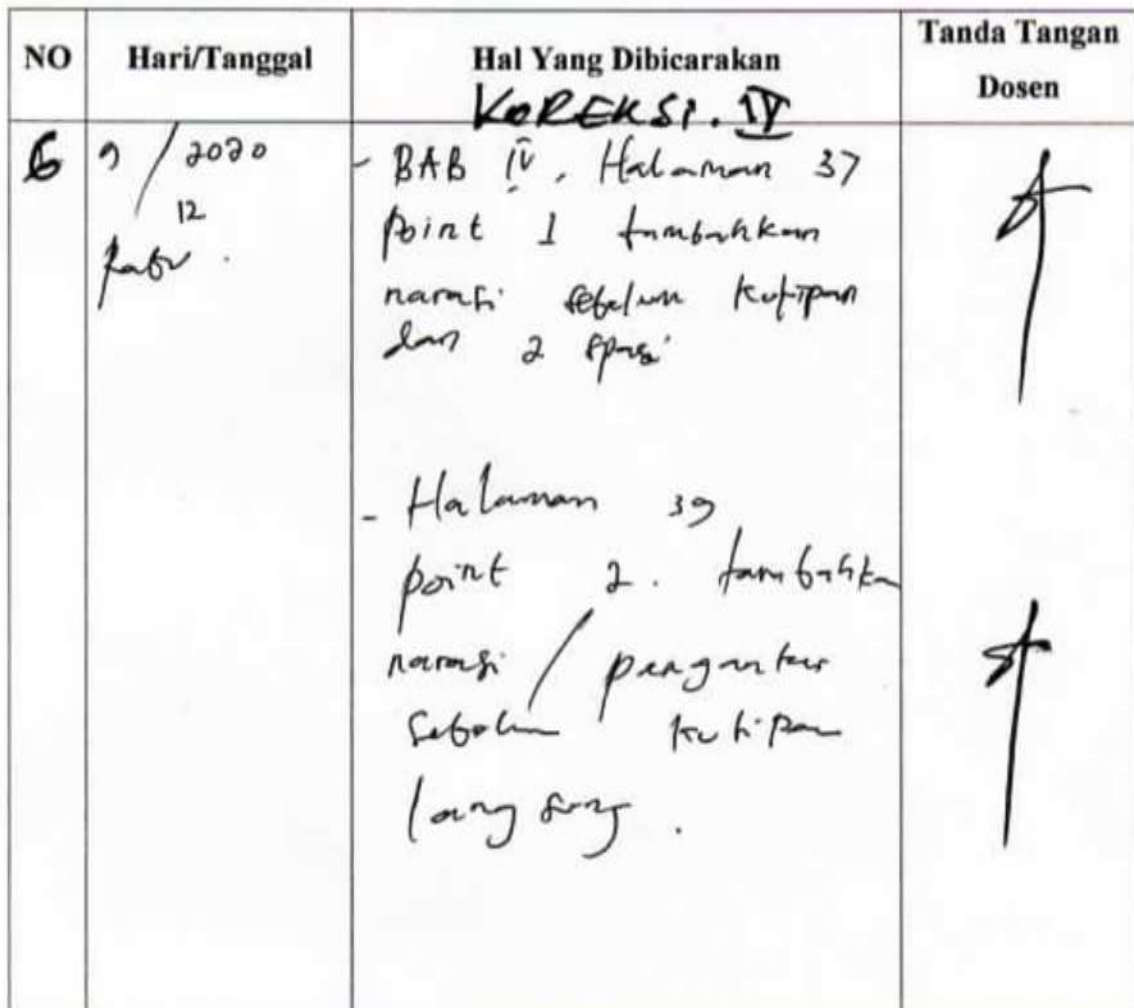 NO Hari/Tanggal Hal Yang Dibicarakan Tanda Tangan Dosen
KOREKSI. IV
6 9/12 2020 - BAB IV. Halaman 37
Rabu. point 1 tambahkan
narasi sebelum kutipan
dan 2 spasi
- Halaman 39
point 2. tambahkan
narasi / pengantar
sebelum kutipan
langsung.